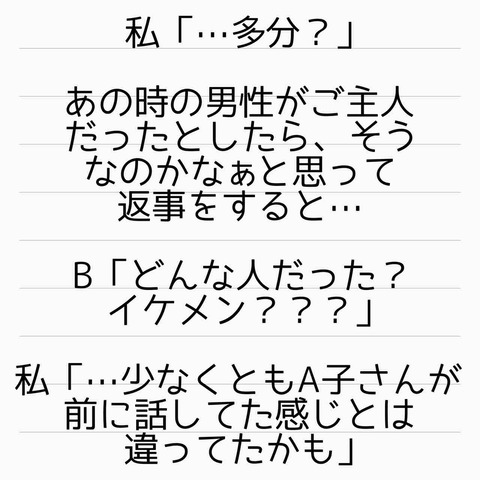 私「…多分？」
あの時の男性がご主人
だったとしたら、そう
なのかなぁと思って
返事をすると…
B「どんな人だった？
イケメン？？？」
私「…少なくともA子さんが
前に話してた感じとは
違ってたかも」